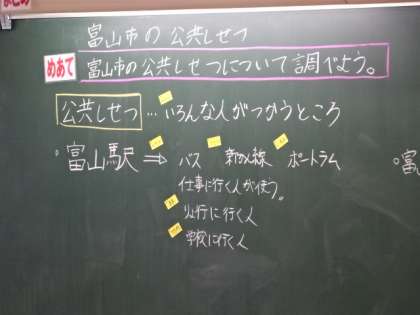 富山市の公共しせつ
めあて 富山市の公共しせつについて調べよう。
公共しせつ…いろんな人がつかうところ
・富山駅⇒バス 新かん線 ポートラム
仕事に行く人が使う。
りょ行に行く人
学校に行く人